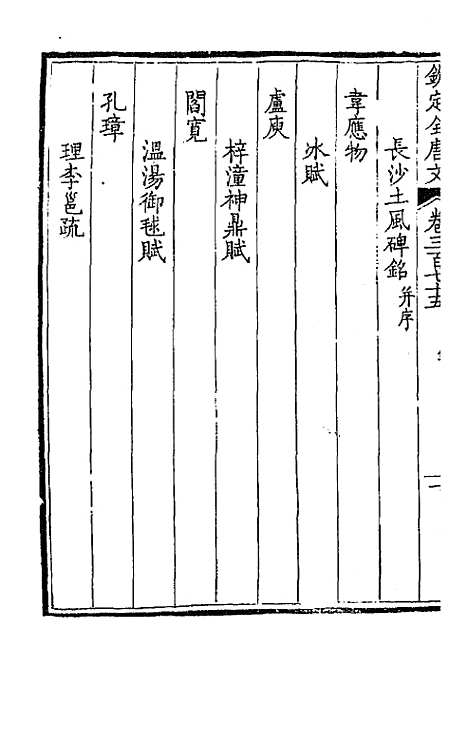 欽定全唐文 卷三百七十五 一
長沙土風碑銘 并序
韋應物
冰賦
盧庾
梓潼神鼎賦
閻寬
溫湯御毬賦
孔璋
理李邕疏